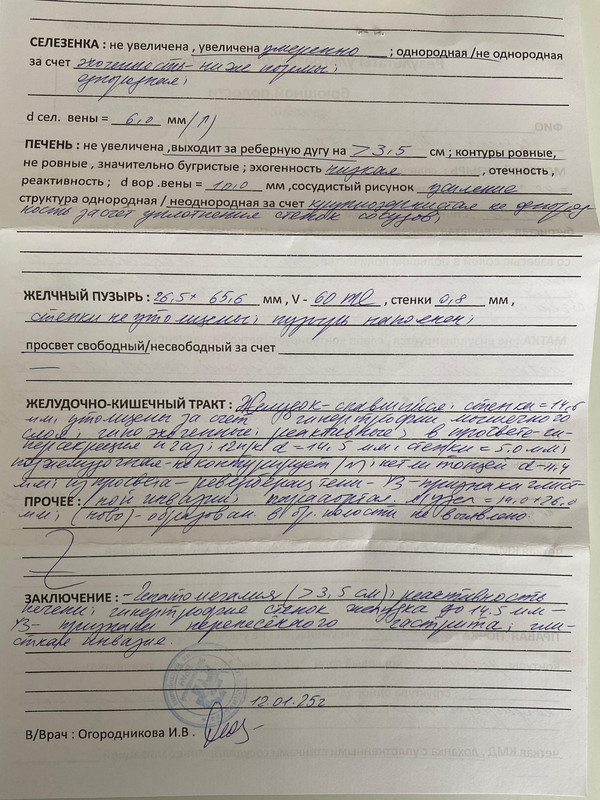 СЕЛЕЗЕНКА : не увеличена , увеличена умеренно ; однородная /не однородная
за счет эхогенность- ниже нормы;
однородная;
d сел. вены = 6,0 мм /N/
ПЕЧЕНЬ : не увеличена ,выходит за реберную дугу на >3,5 см ; контуры ровные,
не ровные , значительно бугристые ; эхогенность низкая , отечность ,
реактивность ; d вор .вены = 10,0 мм ,сосудистый рисунок усиление
структура однородная / неоднородная за счет крупнозернистая не однород
ность за счёт уплотнения стенок сосудов;
ЖЕЛЧНЫЙ ПУЗЫРЬ : 26,5 * 65,6 мм , V - 60 ml , стенки 0,8 мм ,
стенки не утолщены; пузырь наполнен;
просвет свободный/несвободный за счет
—
ЖЕЛУДОЧНО-КИШЕЧНЫЙ ТРАКТ : Желудок- спавшийся; стенки =14,6
мм; утолщены за счет гипертрофии мышечного
слоя; гипоэхогенные; реактивное; в просвете- ги-
персекреция и газ; 12п/к d = 14,5 мм; стенки = 5,0 мм;
поджелудочная- не контурирует /N/; петли тощей d- 11,4
мм; из просвета- реверберации тени- УЗ- признаки глист-
ПРОЧЕЕ : ной инвазии; = 19,0 * 26,0
мм; (ново)- образован. в бр. полости не выявлено.
ЗАКЛЮЧЕНИЕ : - Гепатомегалия (>3,5 см); реактивность
печени; гипертрофия стенок желудка до 14,5 мм-
УЗ- признаки перенесённого гастрита; гли-
стная инвазия.
12.01.25г
В/Врач : Огородникова И.В .